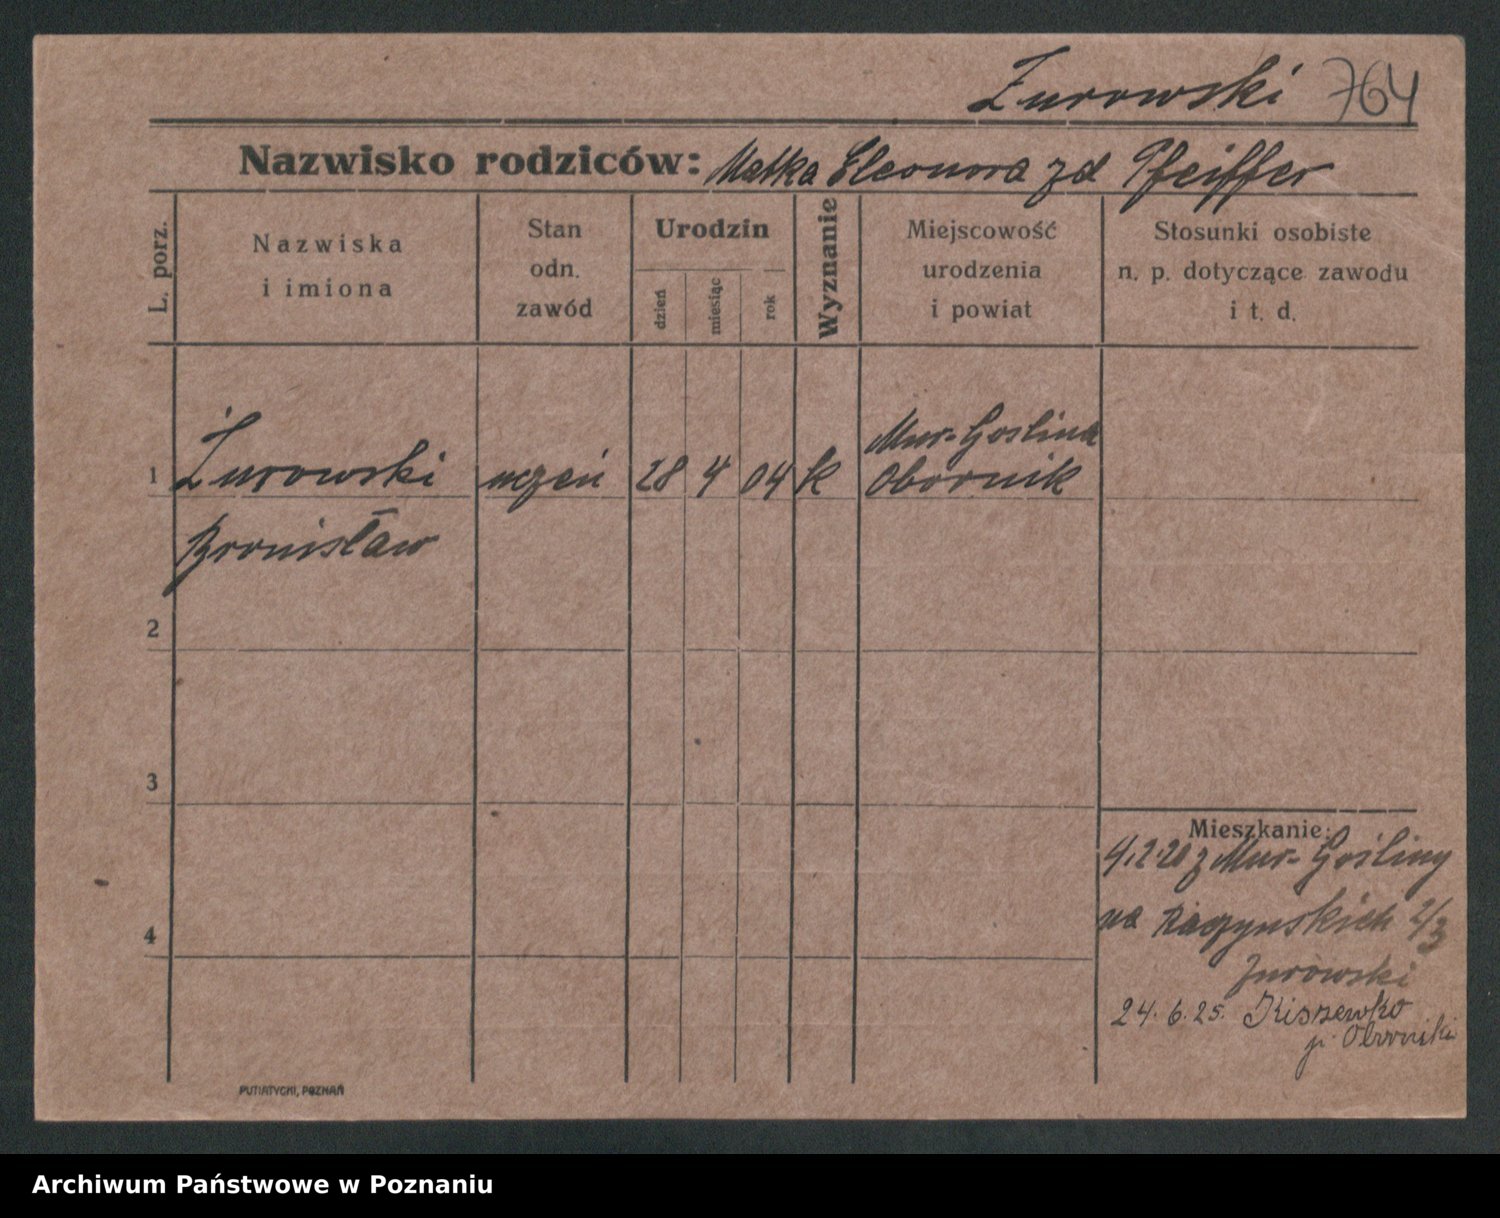 Żurowski 764
Nazwisko rodziców: Matka Eleonora zd Pfeiffer
L. porz.
Nazwiska
i imiona
Stan
odn.
zawód
Urodzin
dzień
miesiąc
rok
Wyznanie
Miejscowość
urodzenia
i powiat
Stosunki osobiste
n. p. dotyczące zawodu
i t. d.
Mur-Goslina
1 Żurowski uczeń 28 4 04 k Obornik
Bronisław
2
3
4
Mieszkanie:
4.2.20 z Mur-Gośliny
na Raczynskich 2/3
Żurowski
24.6.25. Kiszewko
p. Oborniki
PUTIATYCKI, POZNAŃ
Archiwum Państwowe w Poznaniu